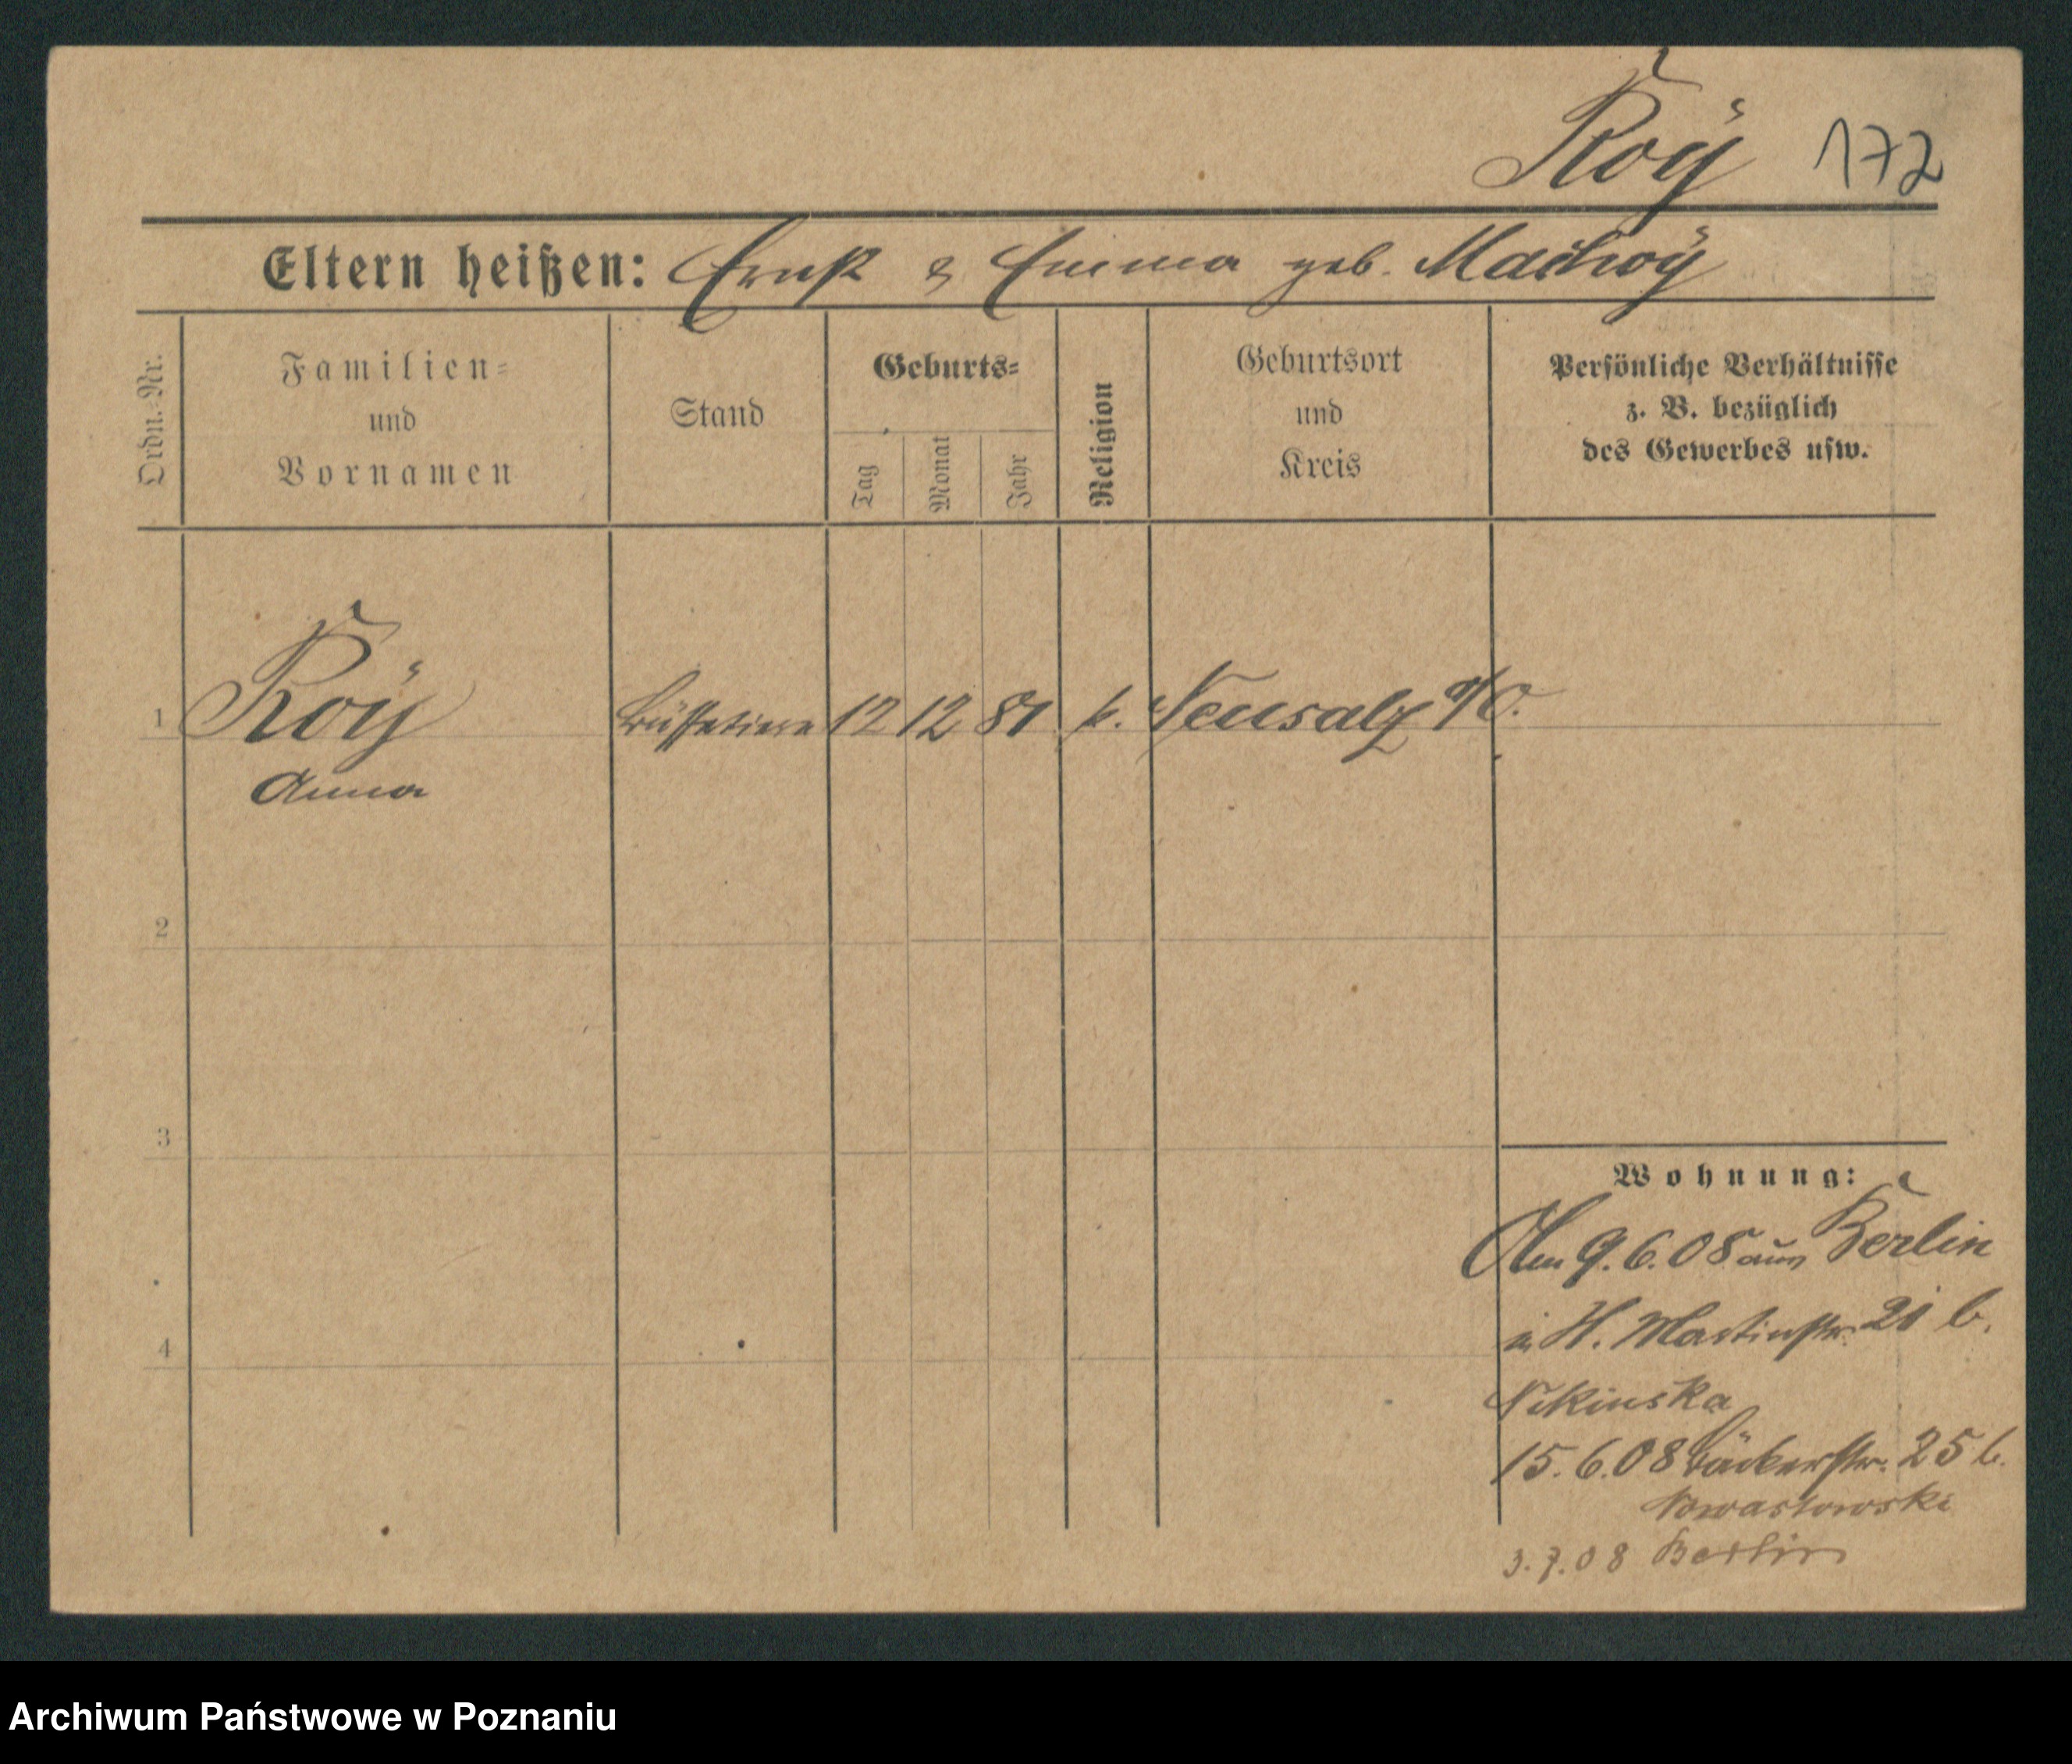 Roÿ 172
Eltern heißen: Ernst & Emma geb. Machoÿ
Ordn.-Nr.
Familien=
und
Vornamen
Stand
Geburts=
Tag
Monat
Jahr
Religion
Geburtsort
und
Kreis
Persönliche Verhältnisse
z. B. bezüglich
des Gewerbes usw.
1 Roÿ Büffetiere 12 12 81 k. Neusalz a/O.
Anna
2
3
4
Wohnung:
Am 9.6.08 aus Berlin
in H. Martinstr. 21 b.
15.6.08 Bäckerstr. 25 b.
3.7.08 Berlin
Archiwum Państwowe w Poznaniu